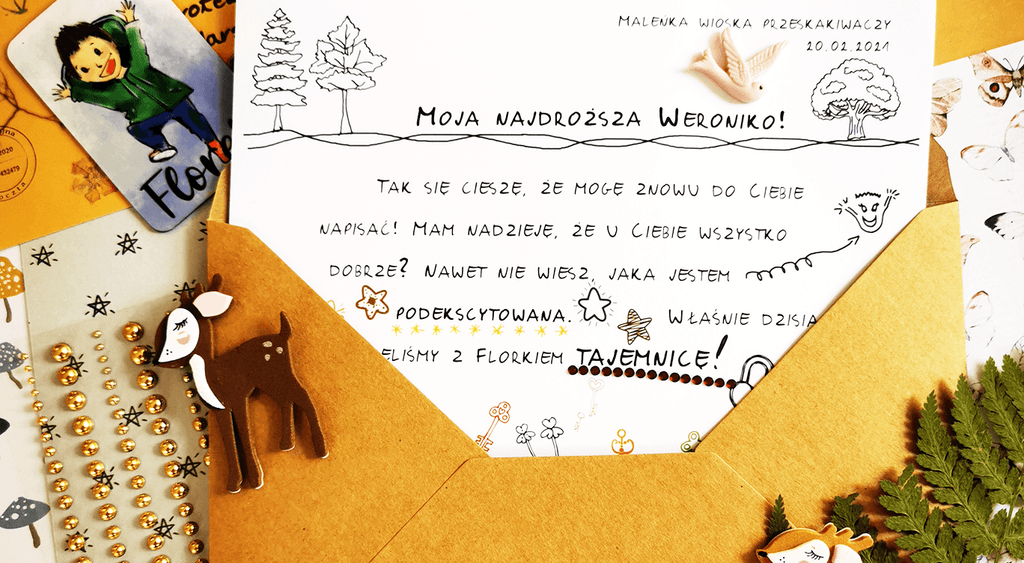 MALEŃKA WIOSKA PRZESKAKIWACZY
20.02.2021
MOJA NAJDROŻSZA WERONIKO!
TAK SIĘ CIESZĘ, ŻE MOGĘ ZNOWU DO CIEBIE
NAPISAĆ! MAM NADZIEJĘ, ŻE U CIEBIE WSZYSTKO
DOBRZE? NAWET NIE WIESZ, JAKA JESTEM
PODEKSCYTOWANA. WŁAŚNIE DZISIA
ELIŚMY Z FLORKIEM TAJEMNICĘ!
Flore
2020
oczta